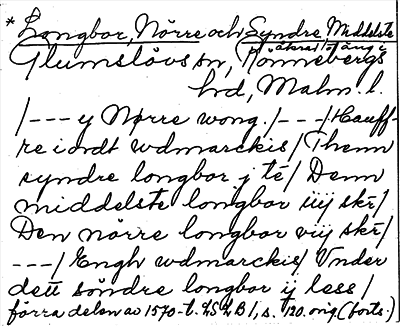 * Longbor, Nörre och Syndre, Middelste
åkrar i äng i
Glumslövs sn, Rönnebergs
hd, Malm. l.
/--- y Nørre wong. /---/ Hauff-
re iordt wdmarckis/ Thenn
syndre longbor j té/ Denn
middelste longbor iiij skr/
Den nörre longbor viij skr/
---/ Engh wdmarckis/ Vnder
dett söndre longbor ij less/
förra delen av 1570-t. LSLB 1, s. 120. orig (forts.)